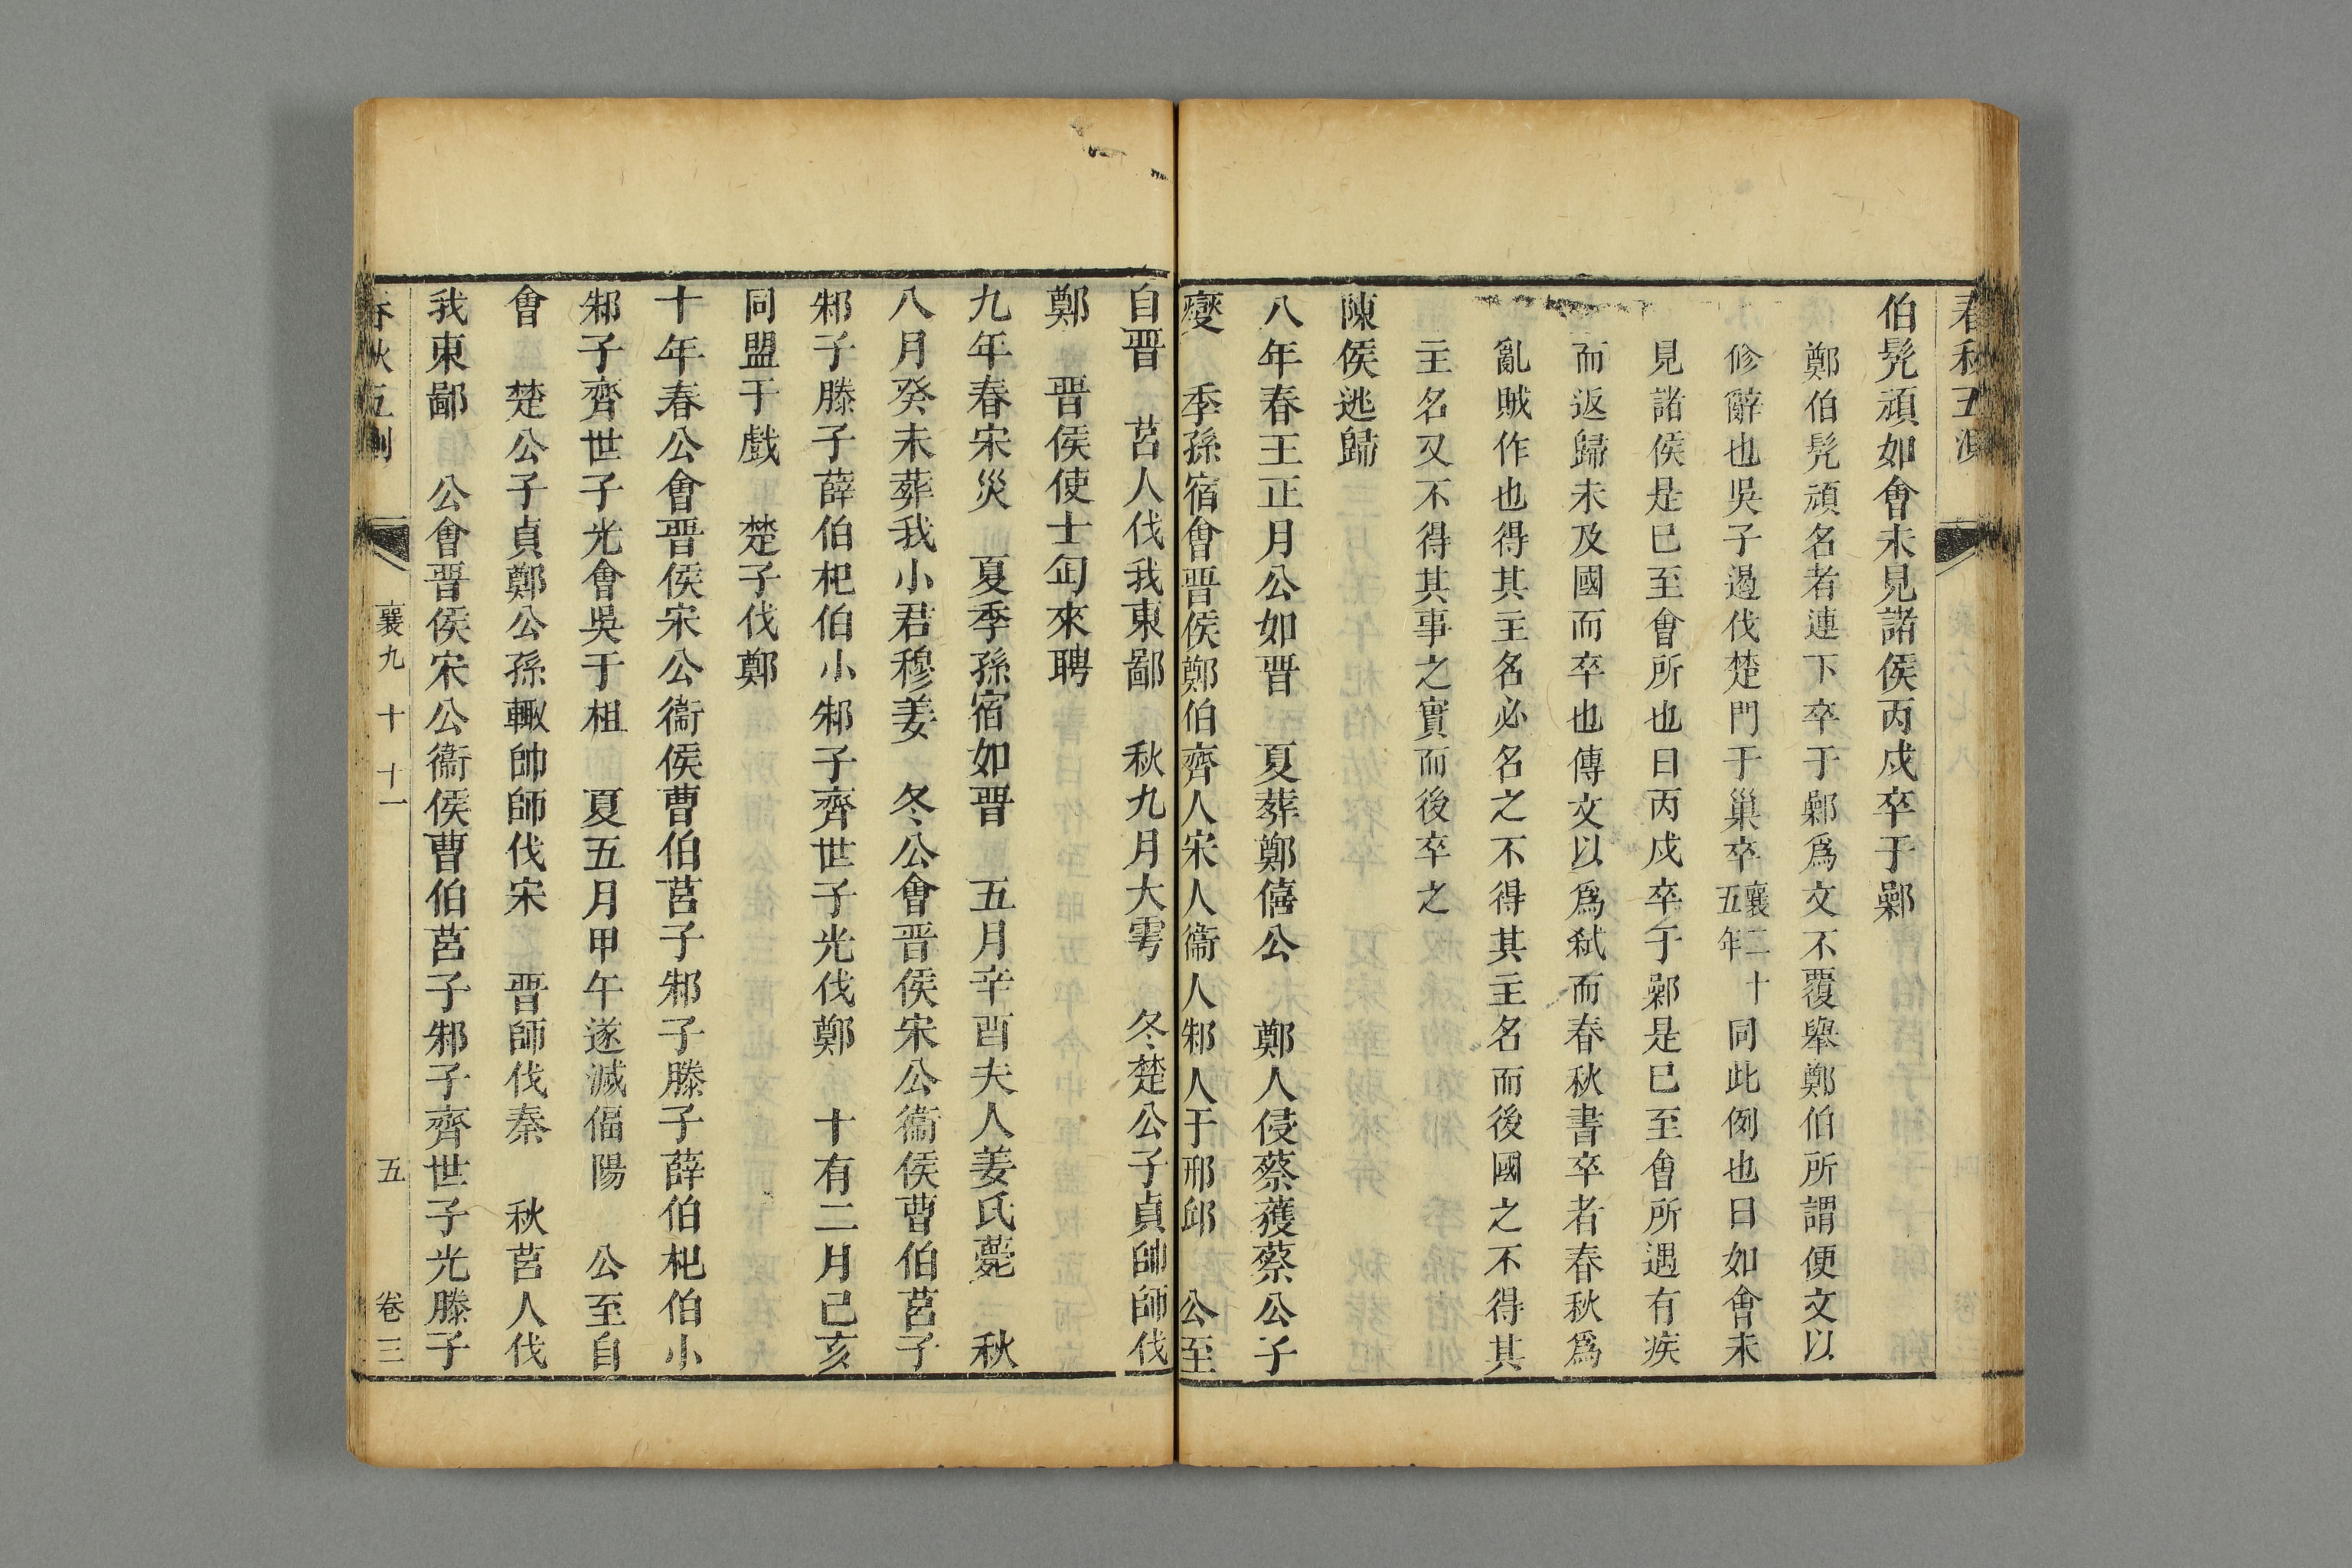 春秋正測
伯髡頑如會未見諸侯丙戌卒于鄵
鄭伯髡頑名者連下卒于鄵爲文不覆舉鄭伯所謂便文以
修辭也吳子遏伐楚門于巢卒襄二十五年同此例也曰如會未
見諸侯是已至會所也曰丙戌卒于鄵是已至會所遇有疾
而返歸未及國而卒也傳文以爲弑而春秋書卒者春秋爲
亂賊作也得其主名必名之不得其主名而後國之不得其
主名又不得其事之實而後卒之
陳侯逃歸
八年春王正月公如晉　夏葬鄭僖公　鄭人侵蔡獲蔡公子
燮　季孫宿會晉侯鄭伯齊人宋人衞人邾人于邢邱　公至
自晉　莒人伐我東鄙　秋九月大雩　冬楚公子貞帥師伐
鄭　晉侯使士匄來聘
九年春宋災　夏季孫宿如晉　五月辛酉夫人姜氏薨　秋
八月癸未葬我小君穆姜　冬公會晉侯宋公衞侯曹伯莒子
邾子滕子薛伯杞伯小邾子齊世子光伐鄭　十有二月己亥
同盟于戲　楚子伐鄭
十年春公會晉侯宋公衞侯曹伯莒子邾子滕子薛伯杞伯小
邾子齊世子光會吳于柤　夏五月甲午遂滅偪陽　公至自
會　楚公子貞鄭公孫輒帥師伐宋　晉師伐秦　秋莒人伐
我東鄙　公會晉侯宋公衞侯曹伯莒子邾子齊世子光滕子
春秋正測　襄九　十　十一　五　卷三